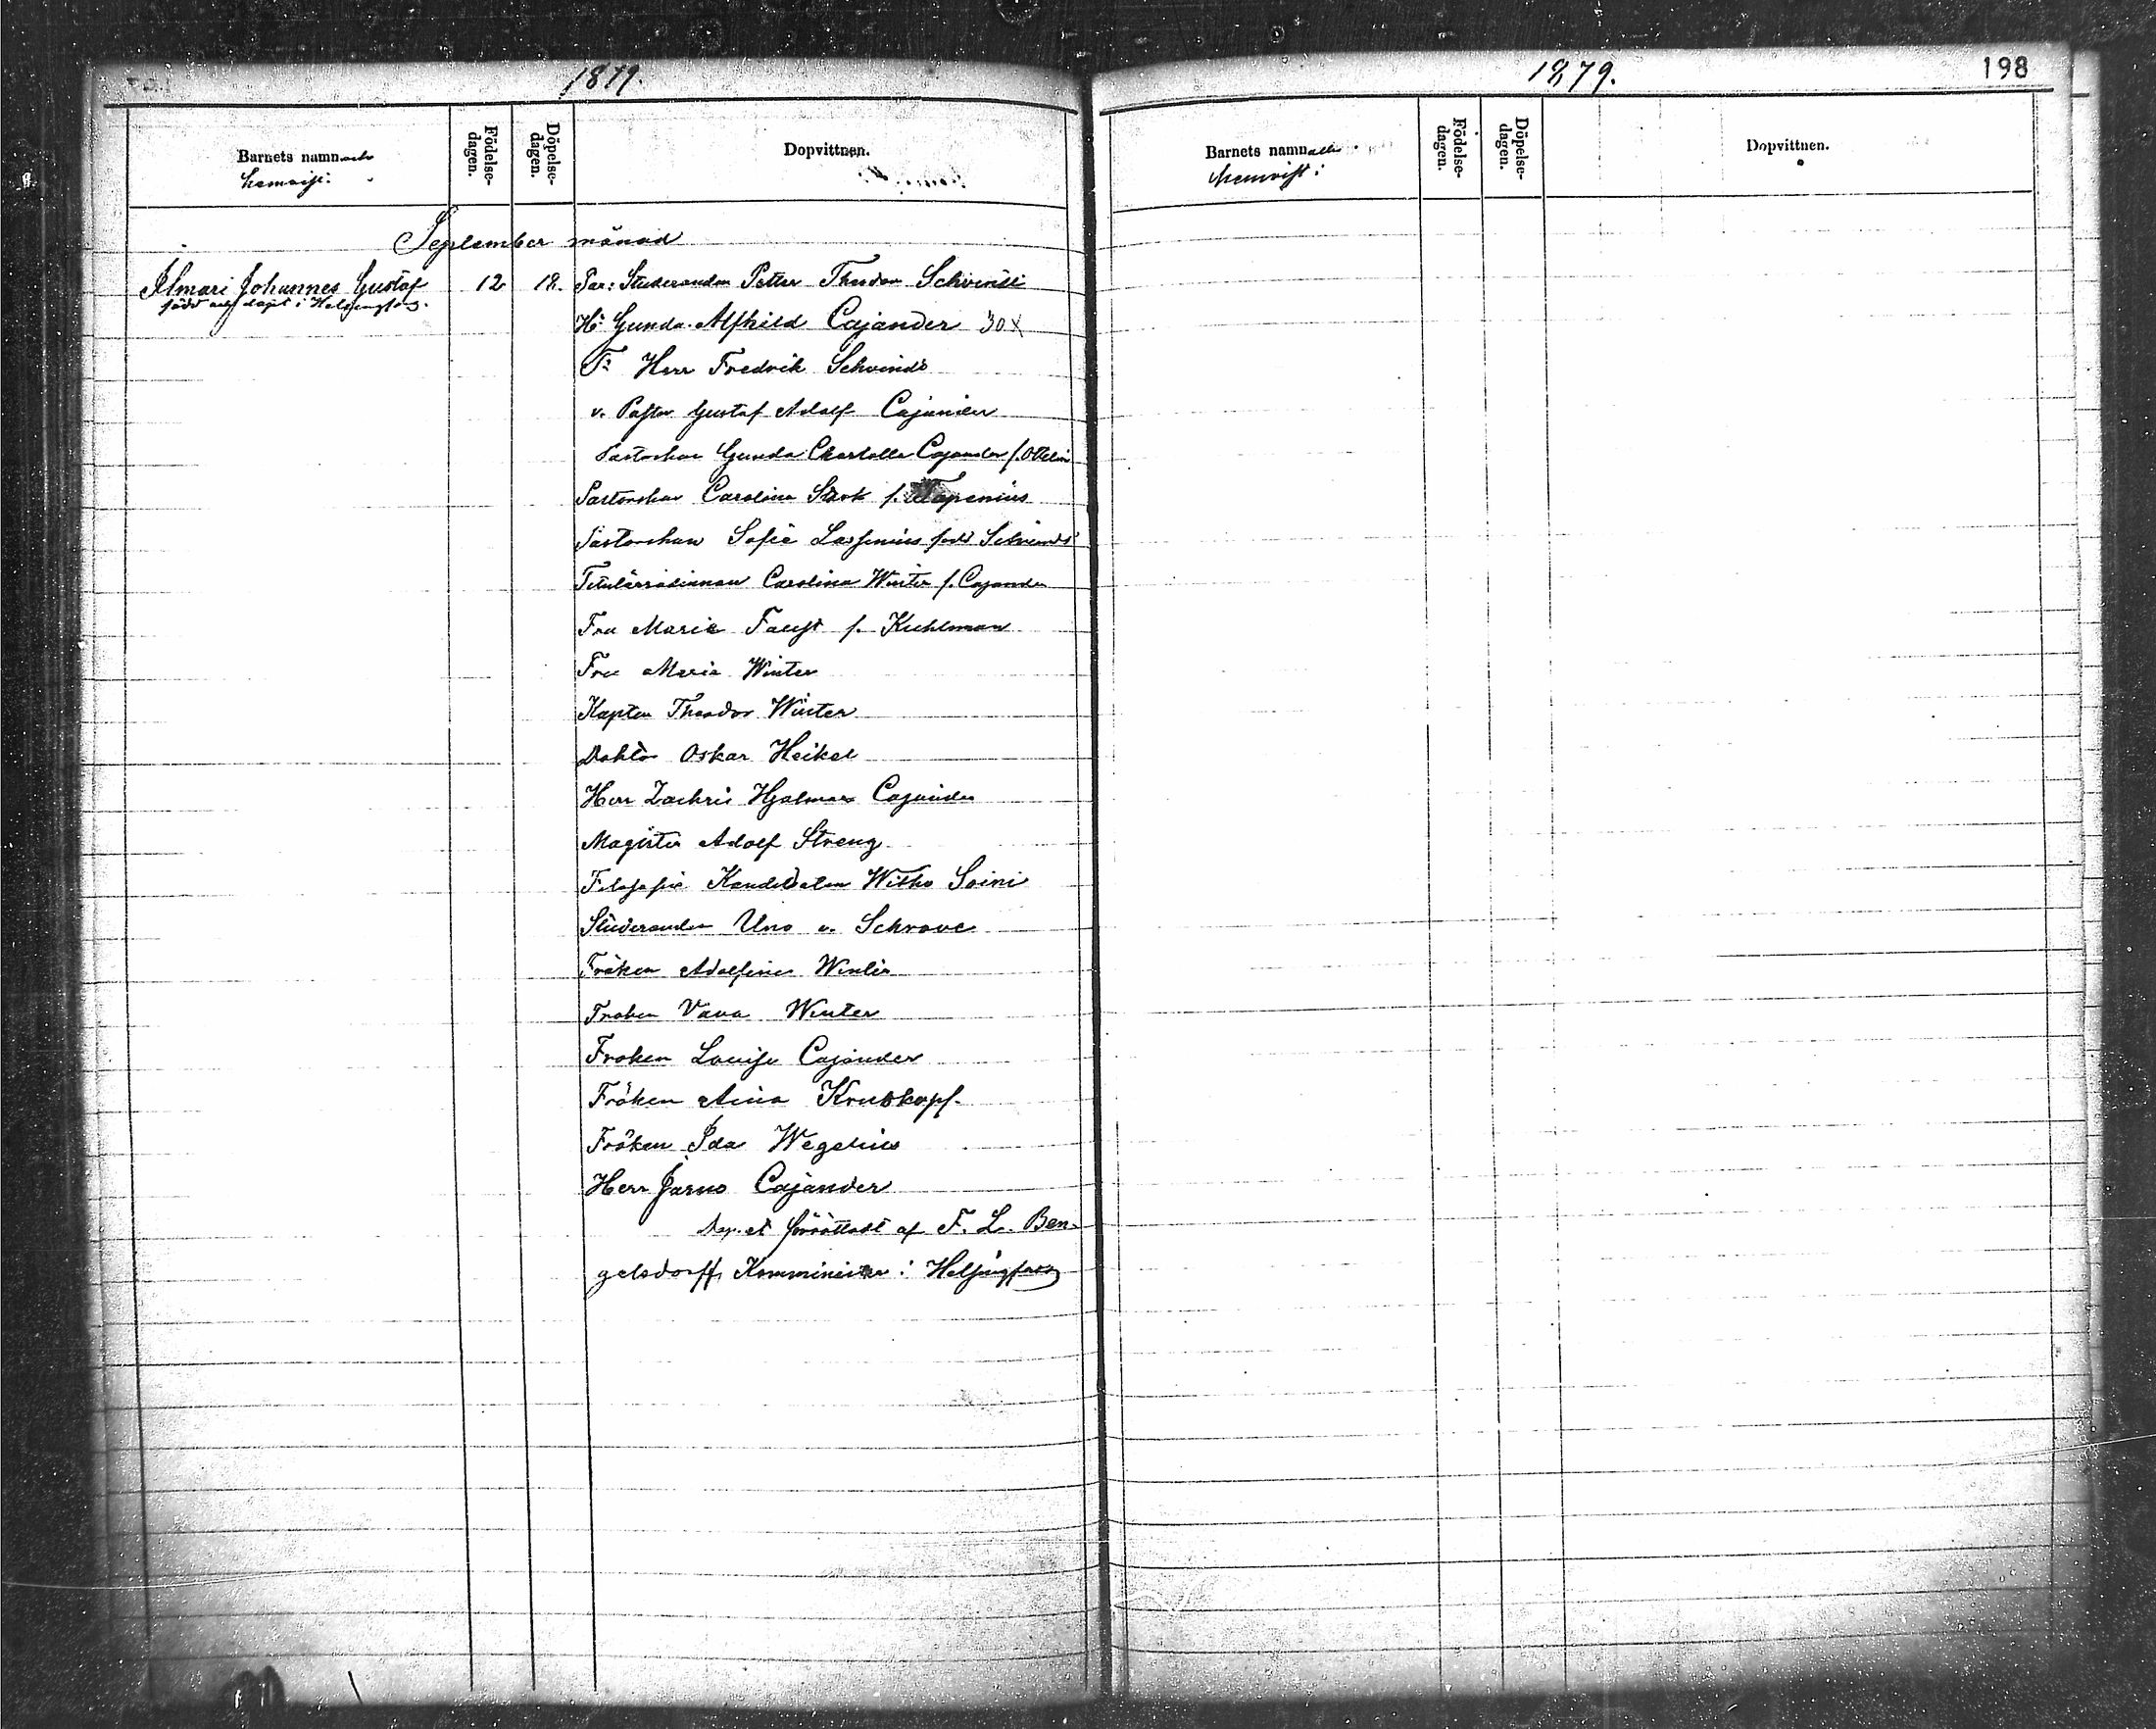 1879.
Barnets namn och
hemvist:
Födelse-
dagen.
Döpelse-
dagen.
Dopvittnen.
September månad
Ilmari Johannes Gustaf 12 18. Par: Studeranden Petter Theodor Schvindt
född och döpt i Helsingfors.
H: Gunda Alfhild Cajander 30
T: Herr Fredrik Schvindt
v. Pastor Gustaf Adolf Cajander
Pastorskan Gunda Charlotta Cajander f.
Pastorskan Carolina f.
Pastorskan Sofie född Schvindt
Titulärrådinnan Carolina Winter f. Cajander
Fru Marie Faust f. Kuhlman
Fru Maria Winter
Kapten Theodor Winter
Doktor Oskar Heikel
Herr Zachris Hjalmar Cajander
Magister Adolf Streng
Filosofie Kandidaten Wihko Soini
Studeranden Uno v. Schrove
Fröken Adolfine Winter
Fröken Vava Winter
Fröken Louise Cajander
Fröken Aina Kruskopf.
Fröken Ida Wegelius
Herr Jarno Cajander
Dopet förrättadt af F. L. Ben-
gelsdorff, Komminister i Helsingfors
1879.
198
Barnets namn och
hemvist:
Födelse-
dagen.
Döpelse-
dagen.
Dopvittnen.